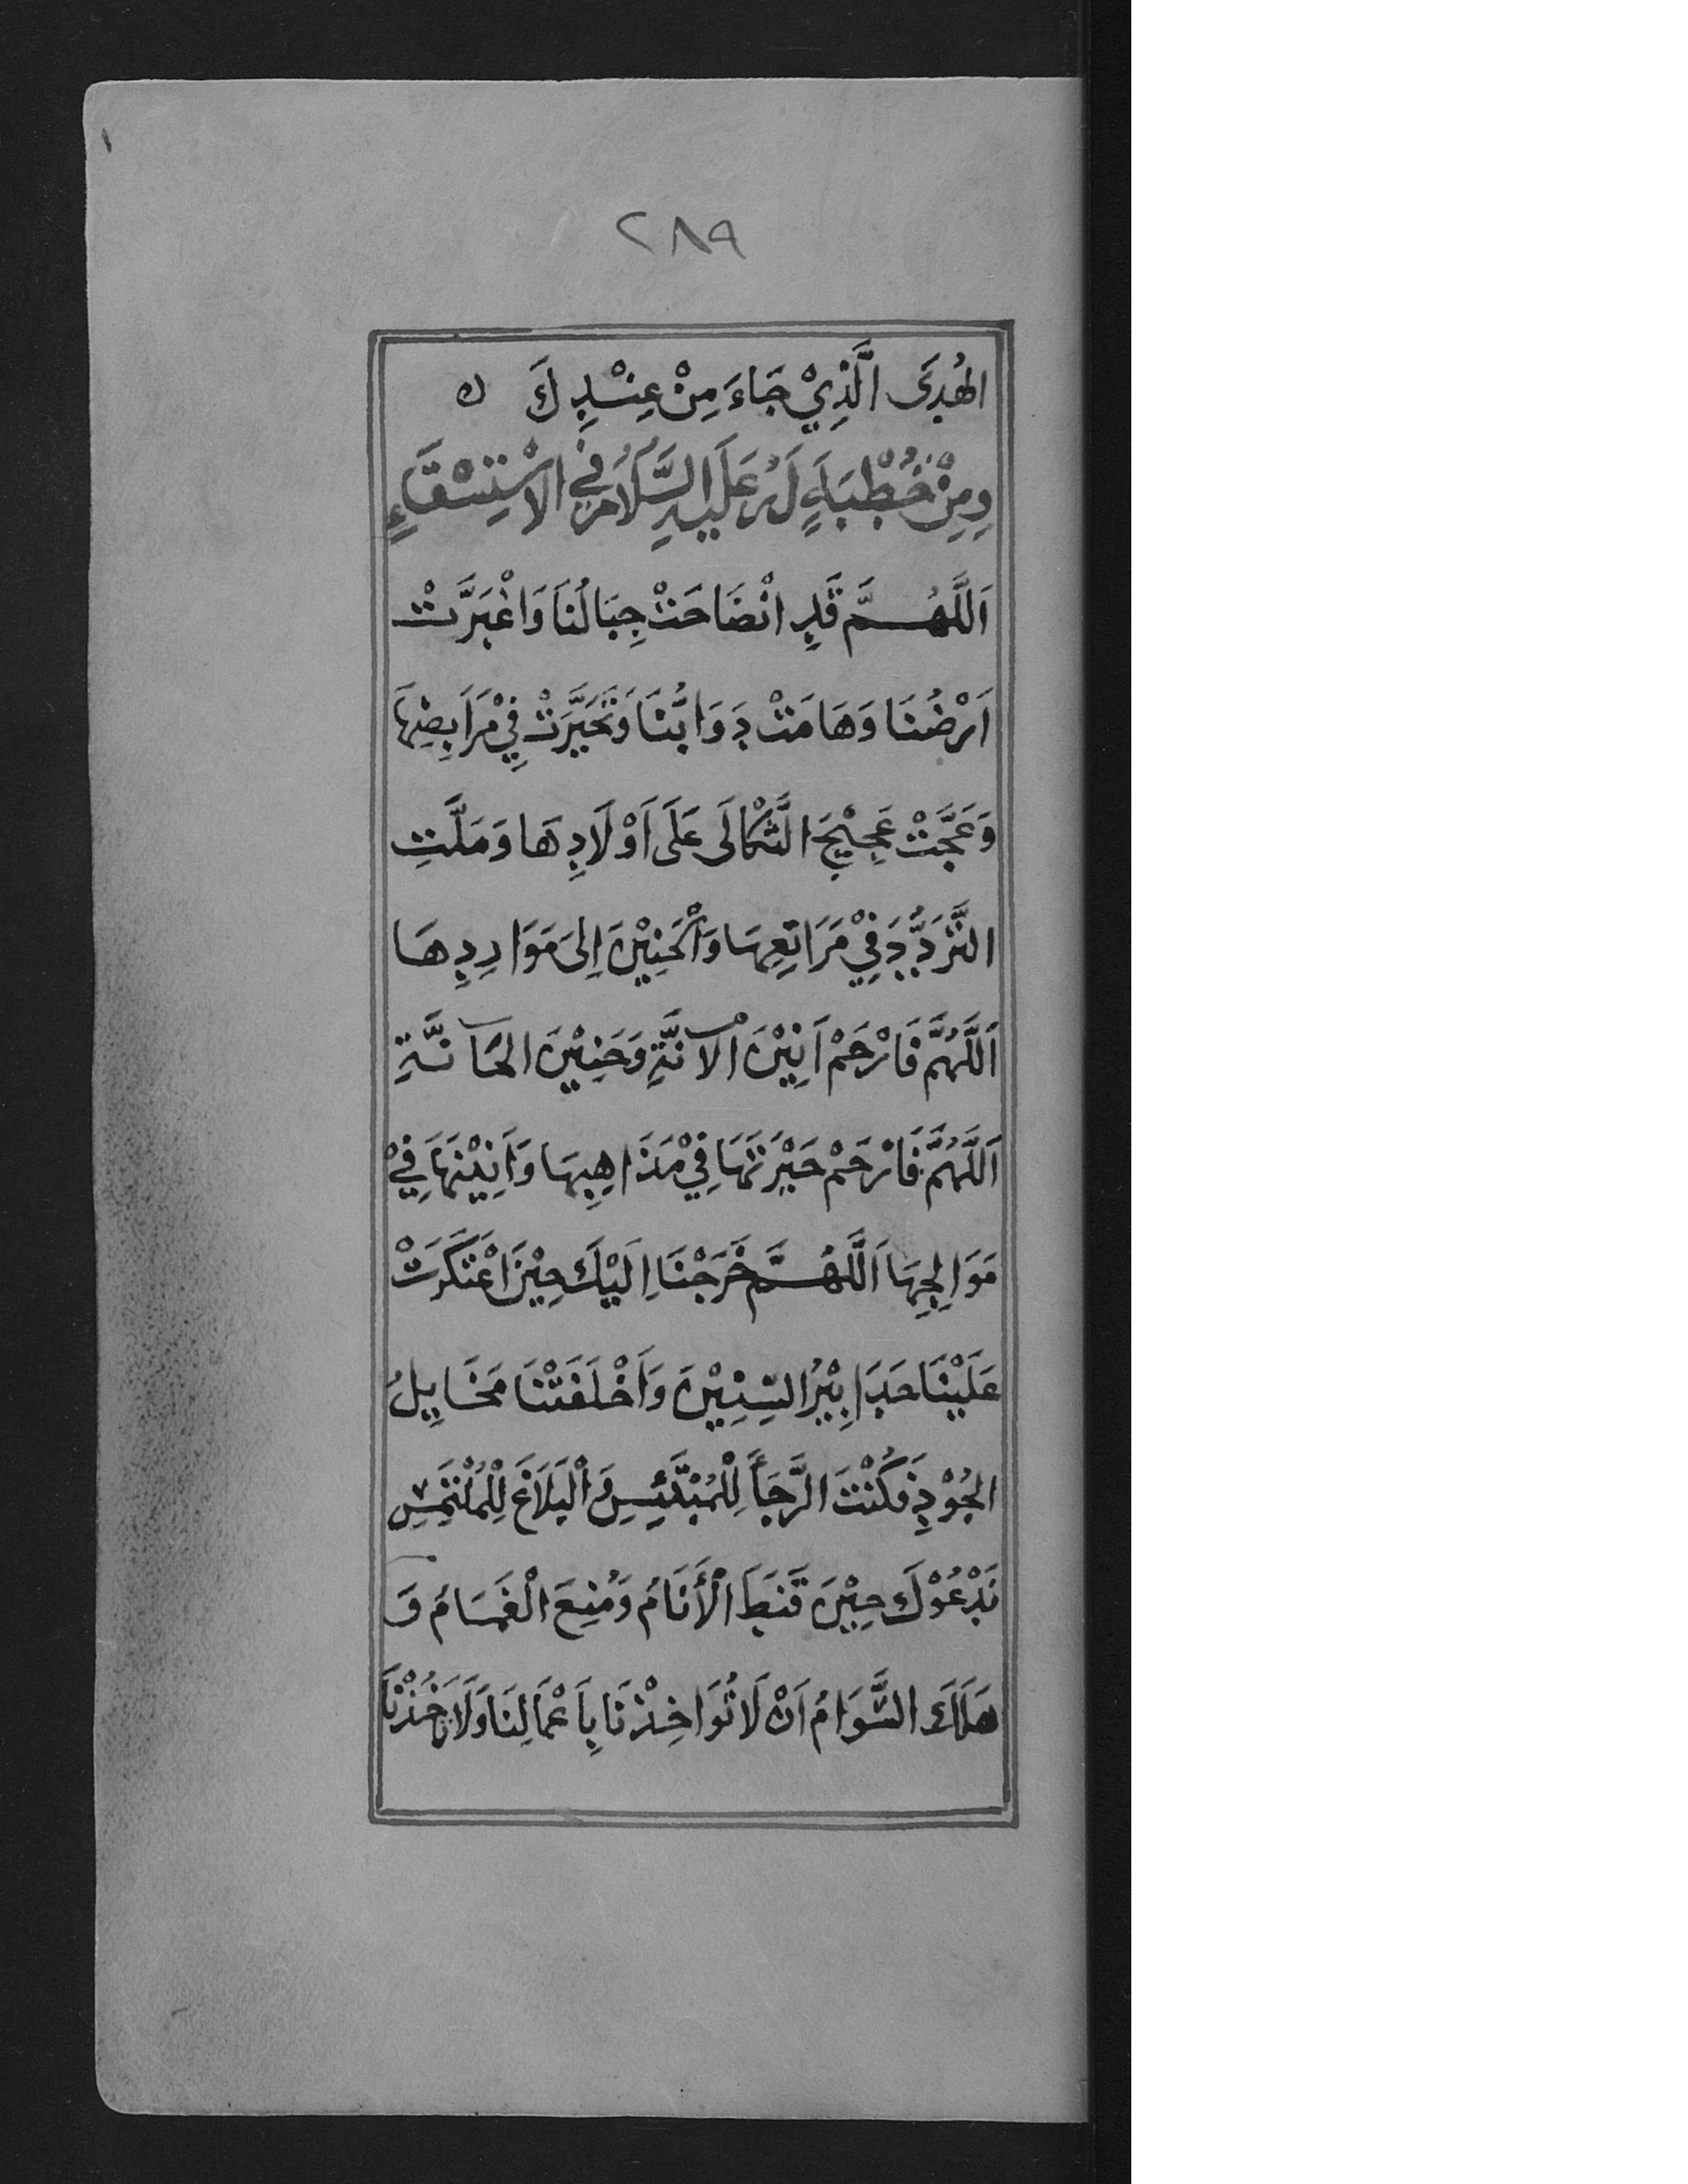 ٢٨٩
الهُدَى الَّذِيْ جَاءَ مِنْ عِنْدِكَ ه
وَمِنْ خُطْبَةٍ لَهُ عَلَيْهِ السَّلَامُ فِي الاسْتِسْقَاءِ
اَللَّهُمَّ قَدِ انْضَاحَتْ جِبَالُنَا وَاغْبَرَّتْ
اَرْضُنَا وَهَامَتْ دَوَابُّنَا وَتَحَيَّرَتْ فِيْ مَرَابِضِهَا
وَعَجَّتْ عَجِيْجَ الثَّكَالَى عَلَى اَوْلَادِهَا وَمَلَّتِ
التَّرَدُّدَ فِيْ مَرَاتِعِهَا وَالْحَنِيْنَ اِلَى مَوَارِدِهَا
اَللَّهُمَّ فَارْحَمْ اَنِيْنَ الْآنَّةِ وَحَنِيْنَ الحَآنَّةِ
اَللَّهُمَّ فَارْحَمْ حَيْرَتَهَا فِيْ مَذَاهِبِهَا وَاَنِيْنَهَا فِيْ
مَوَالِجِهَا اَللَّهُمَّ خَرَجْنَا اِلَيْكَ حِيْنَ اعْتَكَرَتْ
عَلَيْنَا حَدَابِيْرُ السِّنِيْنَ وَاَخْلَفَتْنَا مَخَايِلُ
الجُوْدِ فَكُنْتَ الرَّجَاَ لِلْمُبْتَئِسِ وَالْبَلَاغَ لِلْمُلْتَمِسِ
نَدْعُوْكَ حِيْنَ قَنَطَ الْأَنَامُ وَمُنِعَ الْغَمَامُ وَ
هَلَكَ السَّوَامُ اَنْ لَا تُوَاخِذْنَا بِاَعْمَالِنَا وَلَا تَاْخُذْنَا